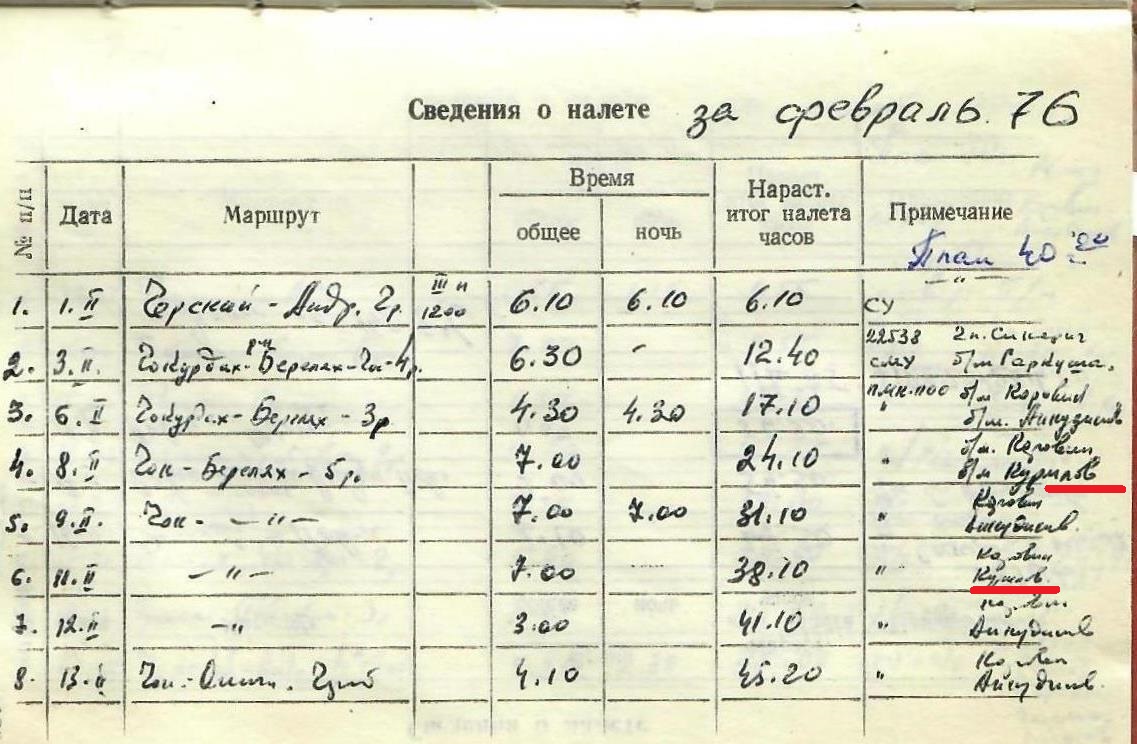 Сведения о налете за февраль 76
№ п/п Дата Маршрут Время Нараст. итог налета часов Примечание
общее ночь
План 40
1. 1.II Черский - Андр. 2р. III п 1200 6.10 6.10 6.10 СУ
2. 3.II. Чокурдах- Берелях-Чок-4р. 6.30 - 12.40 22538 2п.
СМУ б/м Гаркуша.
3. 6.II Чокурдах- Берелях - 3р 4.30 4.30 17.10 б/м Коровин
" б/м.
4. 8.II Чок- Берелях - 5р. 7.00 24.10 " б/м. Коровин
б/м Курилов
5. 9.II. Чок- — " — 7.00 7.00 31.10 " Коровин
6. 11.II — " — 7.00 38.10 " Коровин
Курилов.
7. 12.II — " 3.00 41.10 " Коровин
8. 13.II Чок.- 4.10 45.20 " Коровин